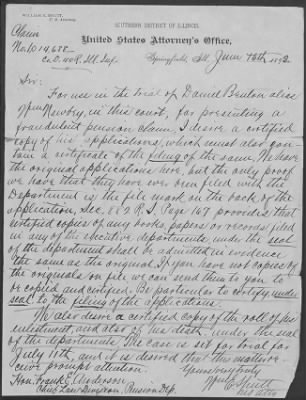 WILLIAM E. SHUTT,
U. S. Attorney.
SOUTHERN DISTRICT OF ILLINOIS.
United States Attorney's Office,
Claim
No. 1014,678
Co. D. 40 R. Ill. Inf.
Springfield, Ill. June 18th 1892
Sir:
For use in the trial of Daniel Benton alias
Wm Newbry, in this court, for presenting a
fraudulent pension claim, I desire a certified
copy of his applications, which must also con-
tain a certificate of the filing of the same. We have
the original applications here, but the only proof
we have that they have ever been filed with the
Department is the file mark on the back of the
application. Sec. 882 R. S. Page 167 provides that
certified copies of any books, papers or records filed
in any of the executive departments under the seal
of the department shall be admitted in evidence
the same as the originals. If you have not copies of
the originals on file we can send them to you to
be copied and certified. Be particular to certify under
seal to the filing of the applications.
We also desire a certified copy of the roll of his
enlistment, and also of his disch. under the seal
of the department. The case is set for trial for
July 11th, and it is desired that this matter re-
ceive prompt attention.
Yours very truly
Wm E Shutt
U S Atty
Hon. Frank E. Anderson,
Chief Law Division, Pension Dep.